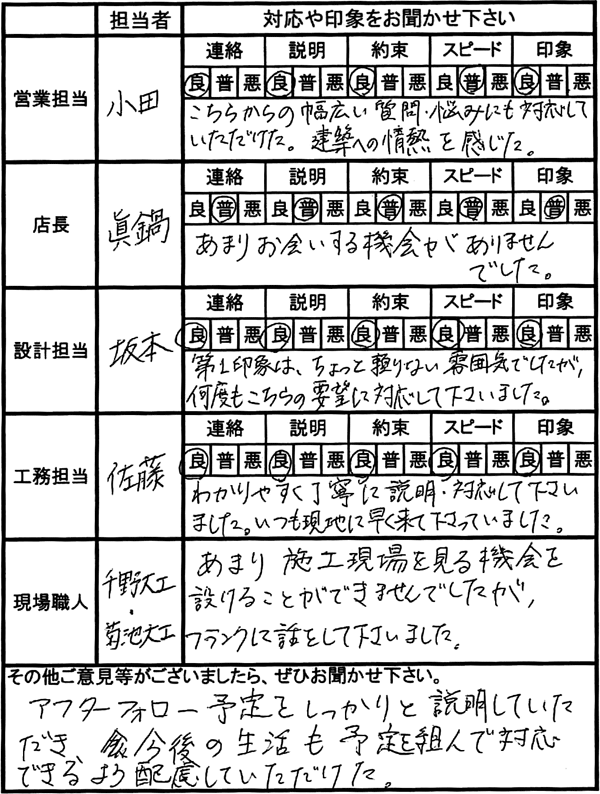 担当者 対応や印象をお聞かせ下さい
営業担当 小田
連絡 説明 約束 スピード 印象
良 普 悪 良 普 悪 良 普 悪 良 普 悪 良 普 悪
こちらからの幅広い質問・悩みにも対応して
いただけた。建築への情熱を感じた。
店長 眞鍋
連絡 説明 約束 スピード 印象
良 普 悪 良 普 悪 良 普 悪 良 普 悪 良 普 悪
あまりお会いする機会がありません
でした。
設計担当 坂本
連絡 説明 約束 スピード 印象
良 普 悪 良 普 悪 良 普 悪 良 普 悪 良 普 悪
第1印象は、ちょっと頼りない雰囲気でしたが、
何度もこちらの要望に対応して下さいました。
工務担当 佐藤
連絡 説明 約束 スピード 印象
良 普 悪 良 普 悪 良 普 悪 良 普 悪 良 普 悪
わかりやすく丁寧に説明・対応して下さい
ました。いつも現地に早く来て下さっていました。
現場職人 千野大工・菊池大工
あまり施工現場を見る機会を
設けることができませんでしたが、
フランクに話をして下さいました。
その他ご意見等がございましたら、ぜひお聞かせ下さい。
アフターフォロー予定をしっかりと説明していた
だき、今後の生活も予定を組んで対応
できるよう配慮していただけた。